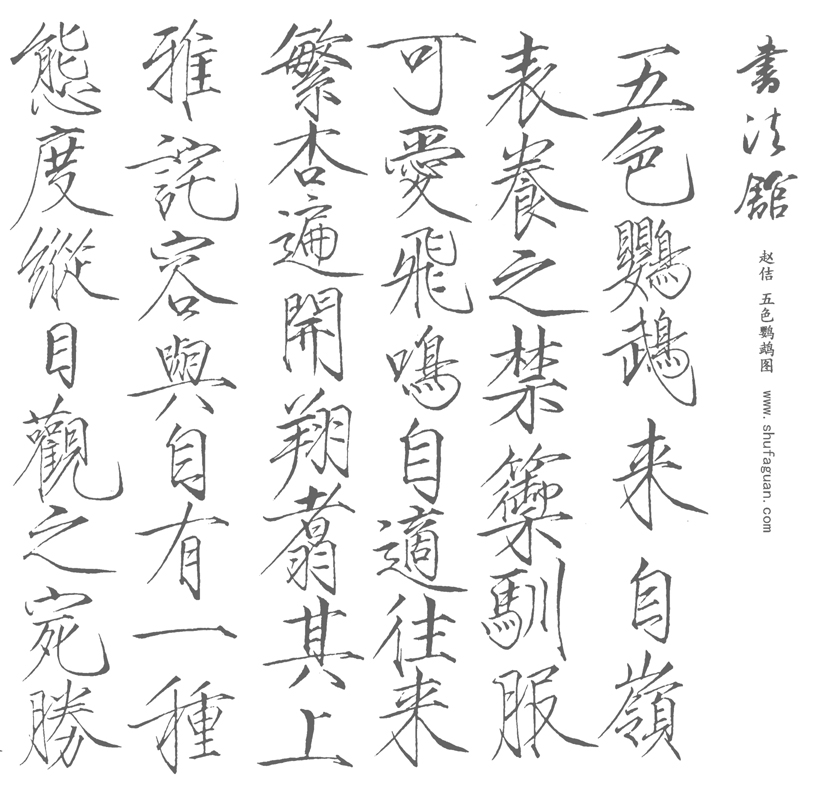 書法館
赵佶 五色鹦鹉图 www.shufaguan.com
五色鸚鵡来自嶺
表養之禁籞馴服
可愛飛鳴自適往来
繁杏遍開翔翥其上
雅詫容與自有一種
態度縱目觀之宛勝